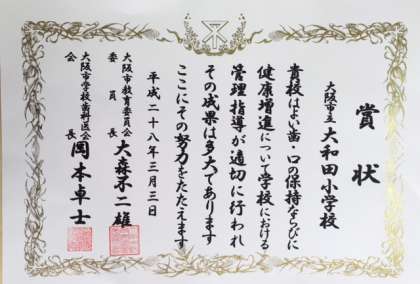 賞状
大阪市立 大和田小学校
貴校はよい歯・口の保持ならびに
健康増進について学校における
管理指導が適切に行われ
その成果は多大であります
ここにその努力をたたえます
平成二十八年三月三日
大阪市教育委員会
委員長 大森不二雄
大阪市学校歯科医会
会長 岡本卓士